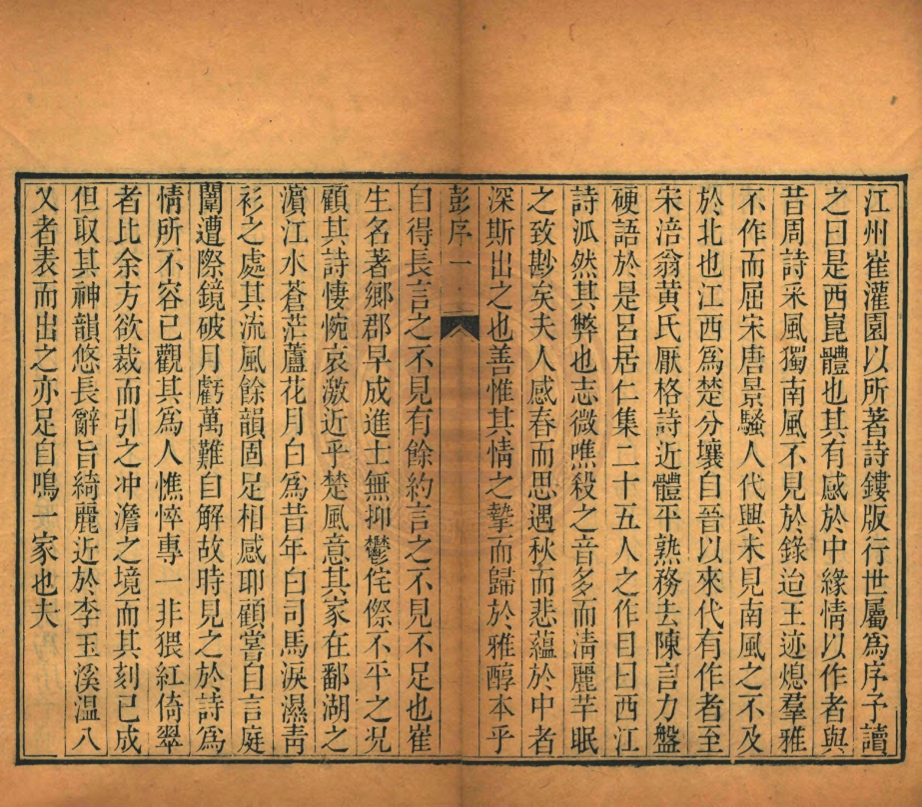 江州崔灌園以所著詩鏤版行世屬爲序予讀
之曰是西崑體也其有感於中緣情以作者與
昔周詩采風獨南風不見於錄迨王迹熄羣雅
不作而屈宋唐景騷人代興未見南風之不及
於北也江西爲楚分壤自晉以來代有作者至
宋涪翁黃氏厭格詩近體平熟務去陳言力盤
硬語於是呂居仁集二十五人之作目曰西江
詩派然其弊也志微噍殺之音多而淸麗芊眠
之致尠矣夫人感春而思遇秋而悲蘊於中者
深斯出之也善惟其情之摯而歸於雅醇本乎
彭序 一
自得長言之不見有餘約言之不見不足也崔
生名著鄉郡早成進士無抑鬱侘傺不平之况
顧其詩悽惋哀激近乎楚風意其家在鄱湖之
濵江水蒼茫蘆花月白爲昔年白司馬淚濕靑
衫之處其流風餘韻固足相感耶顧嘗自言庭
闈遭際鏡破月虧萬難自解故時見之於詩爲
情所不容已觀其爲人憔悴專一非猥紅倚翠
者比余方欲裁而引之冲澹之境而其刻已成
但取其神韻悠長辭旨綺麗近於李玉溪溫八
乂者表而出之亦足自鳴一家也夫